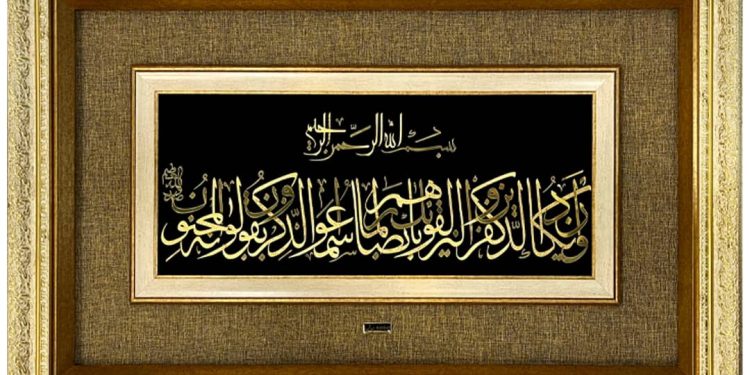 بسم الله الرحمن الرحيم
وإن يكاد الذين كفروا ليزلقونك بأبصارهم لما سمعوا الذكر ويقولون إنه لمجنون